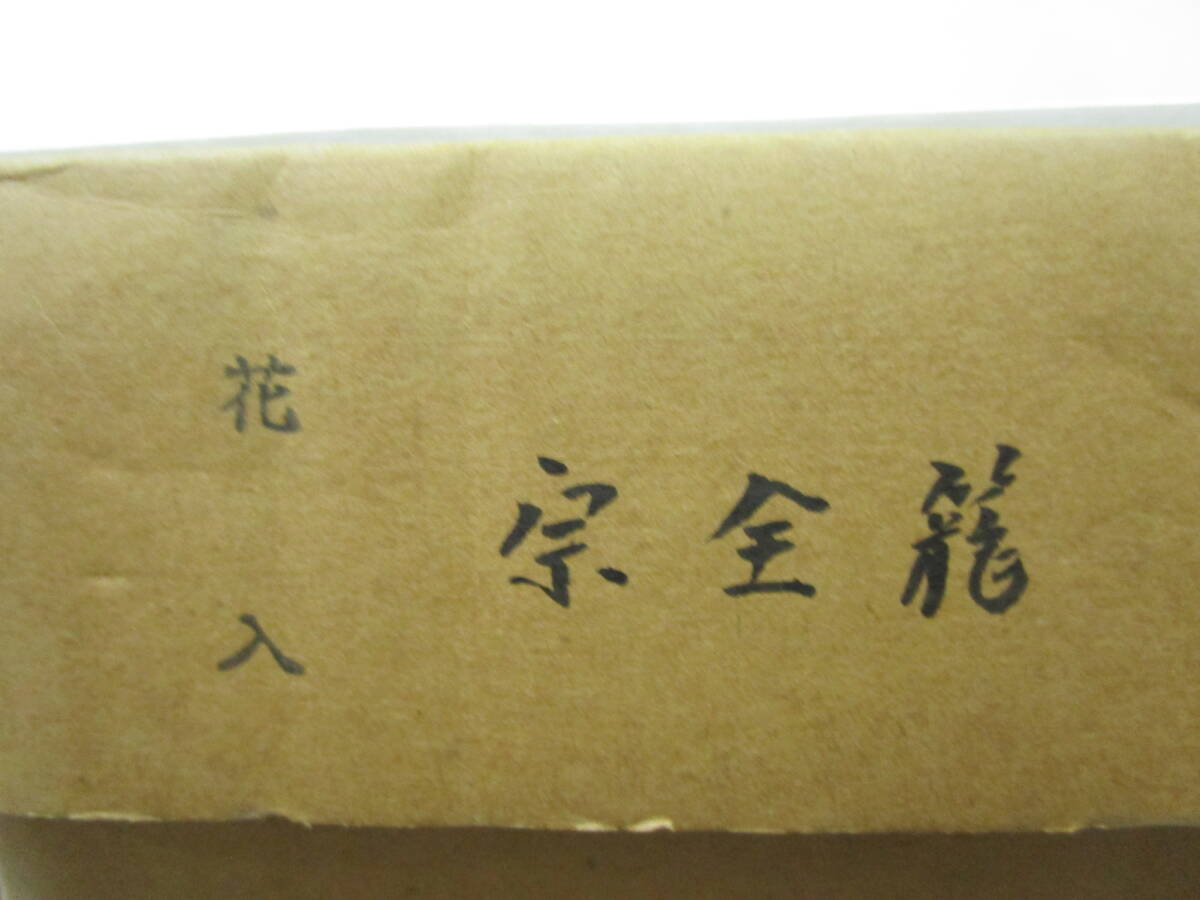 花入
宗全籠